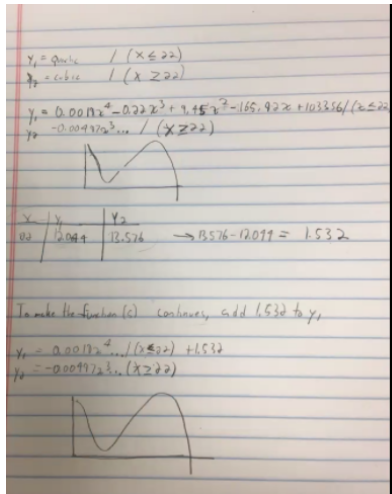 y₁ = quartic / (x ≤ 22)
y₂ = cubic / (x ≥ 22)
y₁ = 0.0018x⁴ - 0.22x³ + 9.45x² - 165.92x + 1033.56 / (x ≤ 22)
y₂ -0.00497x³... / (x ≥ 22)
x y₁ y₂
22 12.044 13.576 → 13.576 - 12.044 = 1.532
To make the function(s) continues, add 1.532 to y₁
y₁ = 0.0018x⁴... / (x ≤ 22) + 1.532
y₂ = -0.00497x³... (x ≥ 22)